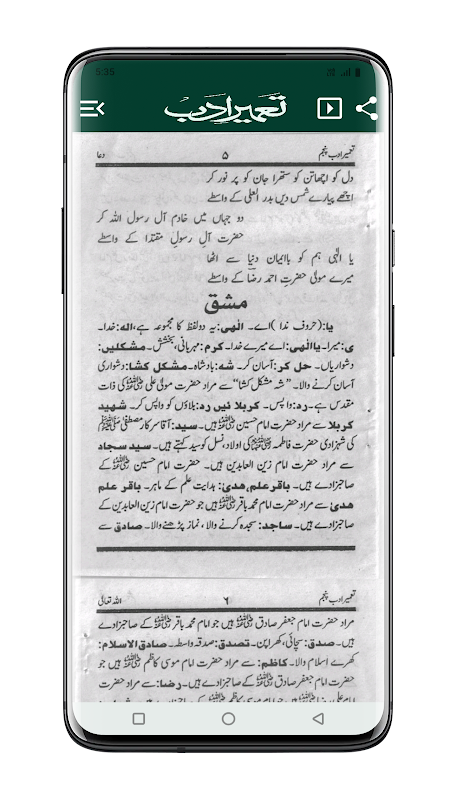 5:35
تعمیر ادب
تعمیر ادب پنجم ۵ دعا
دل کو اچھا تن کو ستھرا جان کو پر نور کر
اچھے پیارے شمس دیں بدر العلیٰ کے واسطے
دو جہاں میں خادم آل رسول اللہ کر
حضرت آلِ رسولِ مقتدا کے واسطے
یا الٰہی ہم کو باایمان دنیا سے اٹھا
میرے مولیٰ حضرتِ احمد رضا کے واسطے
مشق
یا: (حروف ندا) اے۔ الٰھی: یہ دو لفظ کا مجموعہ ہے، الٰہ: خدا۔
ی: میرا۔ یاالٰھی: اے میرے خدا۔ کرم: مہربانی، بخشش۔ مشکلیں:
دشواریاں۔ حل کر: آسان کر۔ شہ: بادشاہ۔ مشکل کشا: دشواری
آسان کرنے والا۔ ”شہ مشکل کشا“ سے مراد حضرت مولیٰ علی ﷛ کی ذات
مقدس ہے۔ رد: واپس۔ کربلائیں رد: بلاؤں کو واپس کر۔ شھید
کربلا سے مراد حضرت امام حسین ﷛ ہیں۔ سید: آقا سرکار مصطفیٰ ﷺ
کی شہزادی حضرت فاطمہ کی اولاد، نسل کو سید کہتے ہیں۔ سید سجاد
سے مراد حضرت امام زین العابدین ہیں۔ حضرت امام حسین ﷛ کے
صاحبزادے ہیں۔ باقر علم ھدیٰ: ہدایت علم کے ماہر۔ باقر علم
ھدیٰ سے مراد حضرت امام محمد باقر ﷛ ہیں جو حضرت امام زین العابدین کے
صاحبزادے ہیں۔ ساجد: سجدہ کرنے والا، نماز پڑھنے والا۔ صادق سے
تعمیر ادب پنجم ۶ اللہ تعالیٰ
مراد حضرت امام جعفر صادق ﷛ ہیں جو امام محمد باقر ﷛ کے صاحبزادے
ہیں۔ صدق: سچائی، کھرا پن۔ تصدق: صدقہ واسطہ۔ صادق الاسلام:
کھرے اسلام والا۔ کاظم: سے مراد حضرت امام موسیٰ کاظم ﷛ ہیں جو
حضرت امام جعفر صادق ﷛ کے صاحبزادے ہیں۔ رضا: سے مراد حضرت